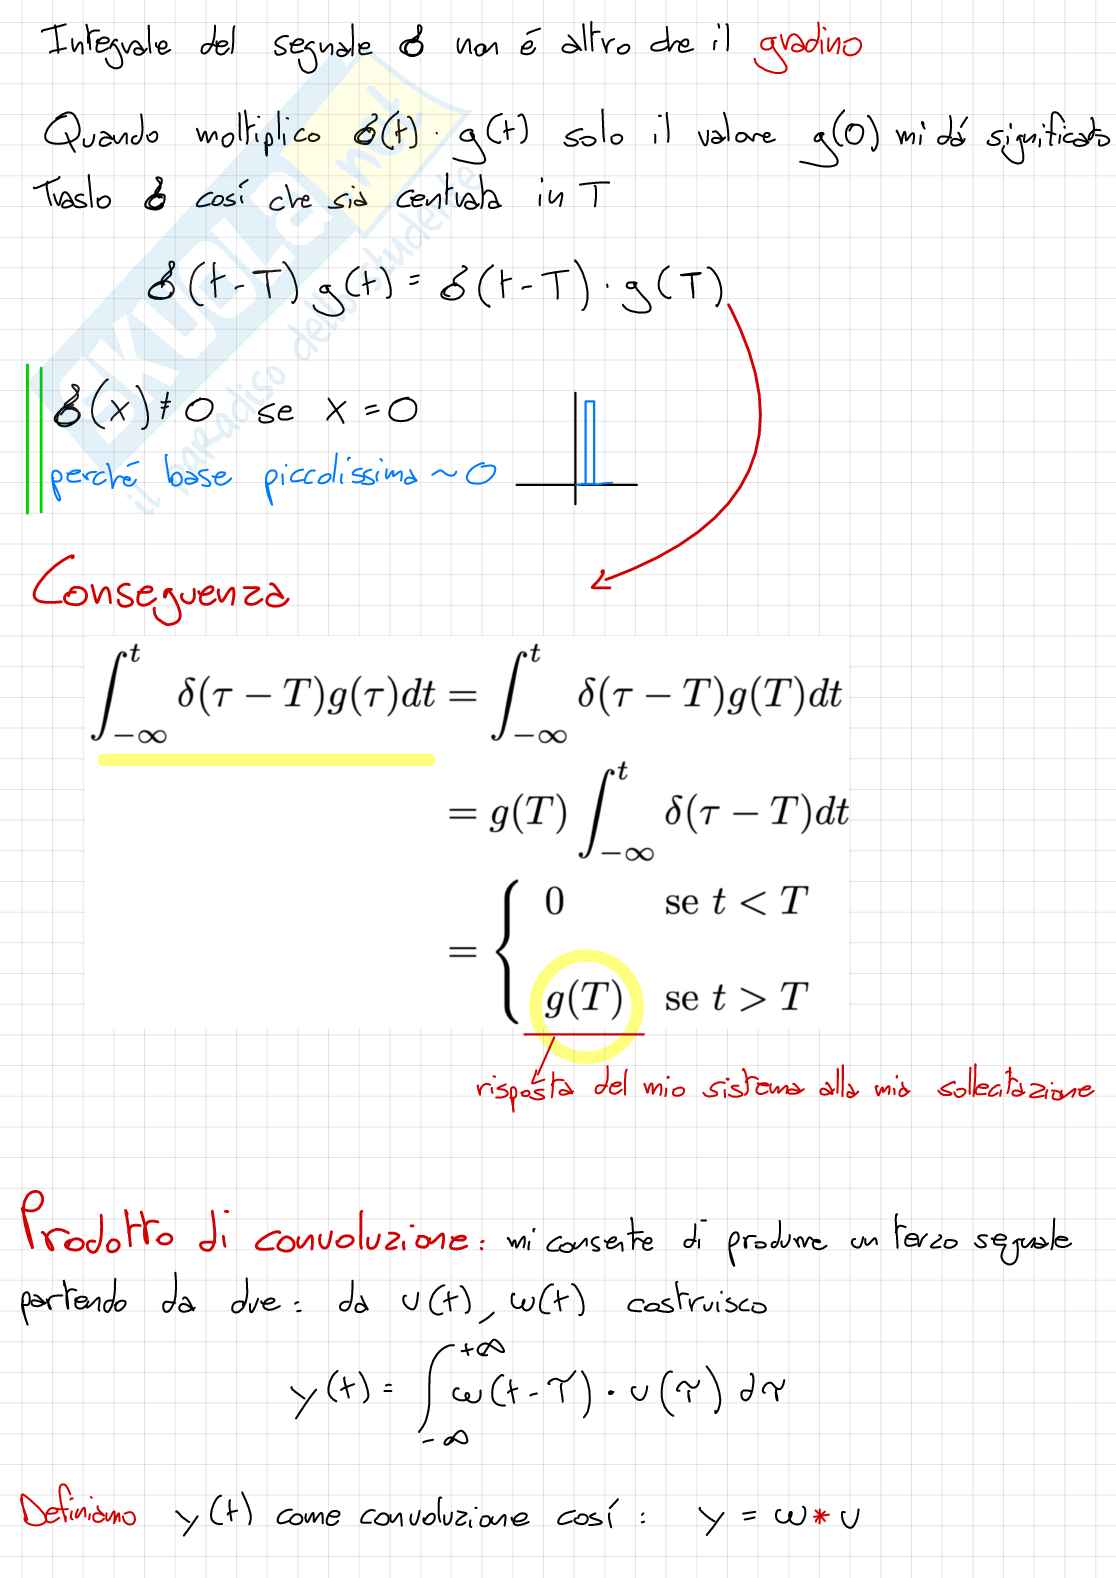 Integrale del segnale δ non é altro che il gradino
Quando moltiplico δ(t) · g(t) solo il valore g(0) mi dá significato
Traslo δ cosí che sia centrata in T
δ(t-T) g(t) = δ(t-T) · g(T)
δ(x) ≠ 0 se x = 0
perché base piccolissima ~ 0
Conseguenza
∫_{-∞}^{t} δ(τ − T)g(τ)dt = ∫_{-∞}^{t} δ(τ − T)g(T)dt
= g(T) ∫_{-∞}^{t} δ(τ − T)dt
= { 0 se t < T
g(T) se t > T
risposta del mio sistema alla mia sollecitazione
Prodotto di convoluzione: mi consente di produrre un terzo segnale
partendo da due: da u(t), w(t) costruisco
y(t) = ∫_{-∞}^{+∞} w(t-τ) · u(τ) dτ
Definiamo y(t) come convoluzione cosí: y = w * u
SKUOLA.net
il paradiso dello studente